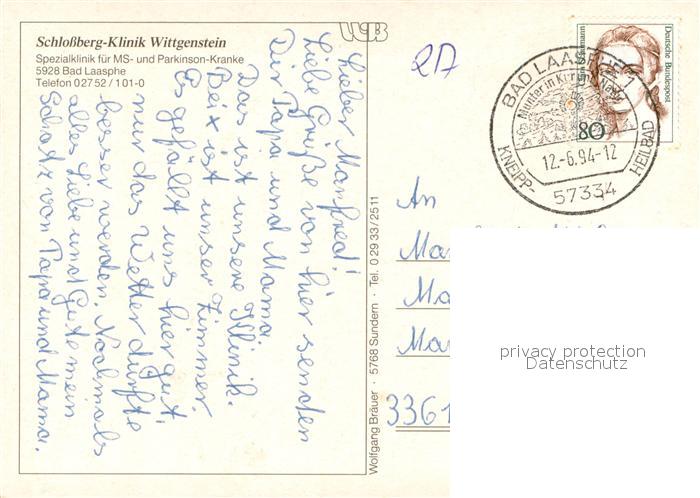 WB
Schloßberg-Klinik Wittgenstein
Spezialklinik für MS- und Parkinson-Kranke
5928 Bad Laasphe
Telefon 02752 / 101-0
Lieber Manfred!
Liebe Grüße von hier senden
Dir Papa und Mama.
Das ist unsere Klinik.
Bei x ist unser Zimmer.
Es gefällt uns hier gut!
nur das Wetter dürfte
besser werden. Nochmals
alles Liebe und Gute mein
Schatz von Papa und Mama.
Wolfgang Bräuer · 5768 Sundern · Tel. 0 29 33 / 25 11
Deutsche Bundespost
80
BAD LAASPHE
Munter in
12.-6.94-12
57334
KNEIPP-
HEILBAD
An
Ma
Ma
Ma
3361
privacy protection
Datenschutz